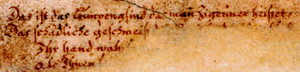 Das ist das Lumpengsind da man Zigeiner heisset
Das schädliche geschmeis
Ihr hand wah
als Ihnen